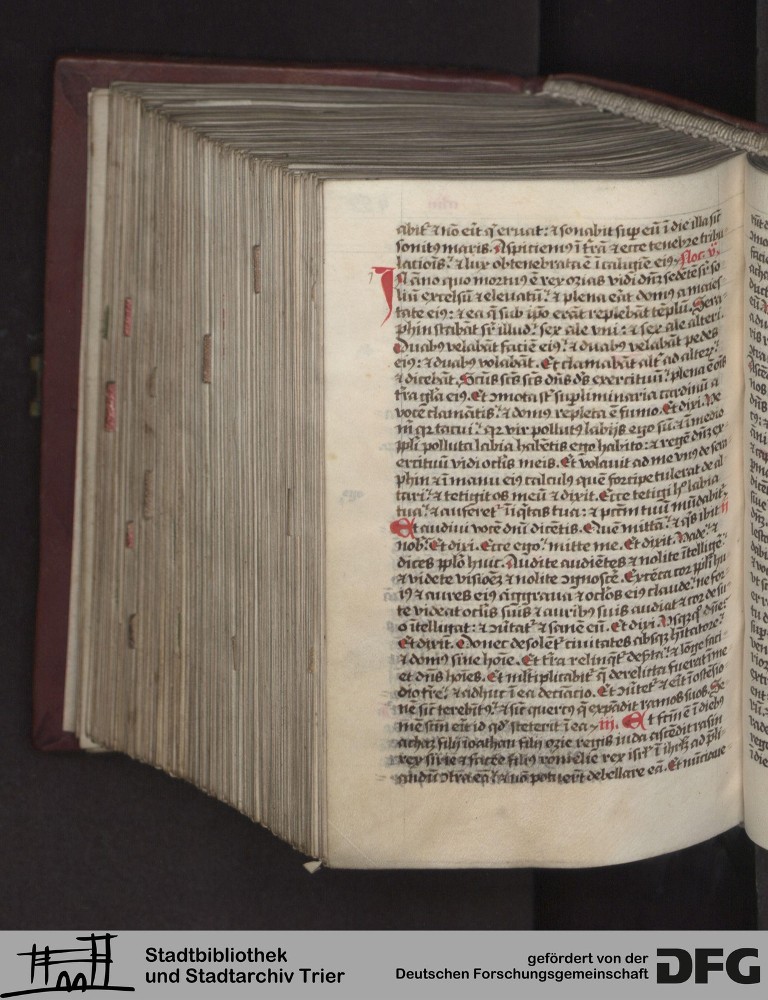 abit˜ ⁊ nō erit q̄ eruat: ⁊ sonabit sup̄ eū ī die illa sic̄
sonitꝰ maris. Aspiciemꝰ ī trā ⁊ ecce tenebre tribu
lacionis: ⁊ lux obtenebrata ē ī caligīe eiꝰ
In āno quo mortuꝰ ē rex ozias vidi dn̄m sedētē sr̄ so
liū excelsū ⁊ eleuatū: ⁊ plena erāt domꝰ a maies
tate eiꝰ: ⁊ ea q̄ sub ip̄o erāt replebāt tēplū. Sera
phin stabāt sr̄ illud: sex ale vni: ⁊ sex ale alteri.
Duabꝰ velabāt faciē eiꝰ: ⁊ duabꝰ velabāt pedes
eiꝰ: ⁊ duabꝰ volabāt. Et clamabāt alt˜ ad alterꝝ:
⁊ dicebāt. Sc̄us sc̄s sc̄s dn̄s ds̄ exercituū: plena ē oīs
tr̄a gl̄a eiꝰ. Et ꝯmota st̄ supliminaria cardinū a
voce clamātis: ⁊ domꝰ repleta ē fumo. Et dixi. Ve
m̄ qr̄ tacui: qr̄ vir pollutꝰ labijs ego sū: ⁊ ī medio
ppl̄i polluta labia habētis ego habito: ⁊ regē dn̄m ex
ercituū vidi oclīs meis. Et volauit ad me vnꝰ de sera
phin ⁊ ī manu eiꝰ calculꝰ quē forcipe tulerat de al
tari: ⁊ tetigit os meū ⁊ dixit. Ecce tetigi h̄ labia
tua: ⁊ auferet˜ īiq̄tas tua: ⁊ pctm̄ tuū mūdabit˜
Et audiui vocē dn̄i dicētis. Quē mittā: ⁊ q̄s ibit
nob̄: Et dixi. Ecce ego: mitte me. Et dixit. Vade: ⁊
dices pplō huic. Audite audiētes ⁊ nolite ītelligē:
⁊ videte visioēȝ ⁊ nolite ꝯgnoscē. Exceca cor ppl̄i hu
iꝰ ⁊ aures eiꝰ aggraua ⁊ oclōs eiꝰ claude: ne for
te videat oclīs suis ⁊ auribꝰ suis audiat ⁊ corde su
o ītelligat: ⁊ ꝯūtat˜ ⁊ sanē eū. Et dixi. Vsqȝ q̄ dn̄e:
Et dixit. Donec desolet˜ ciuitates absqȝ hītatore:
⁊ domꝰ sine hoīe. Et tr̄a relinq̄t˜ des̄ta: ⁊ lōge faci
et dn̄s hoīes. Et mltiplicabit˜ q̄ derelicta fuerat ī me
dio tr̄e: ⁊ adhuc ī ea deciācio. Et ꝯūtet˜ ⁊ erit ī ostēsio
nē sic̄ terebītꝰ: ⁊ sic̄ quercꝰ q̄ expādit ramos suos. Se
mē sc̄m erit id qd̄ steterit ī ea. iii. Et fctm̄ ē ī diebꝰ
achaz filij ioathan filij ozie regis iuda ascēdit rasin
rex sirie ⁊ facee filiꝰ romelie rex isrl̄ ī ihrl̄m ad p̄li
andū ꝯtra eā: ⁊ nō potuerūt debellare eā. Et nūciaue
Stadtbibliothek
und Stadtarchiv Trier
gefördert von der
Deutschen Forschungsgemeinschaft
DFG